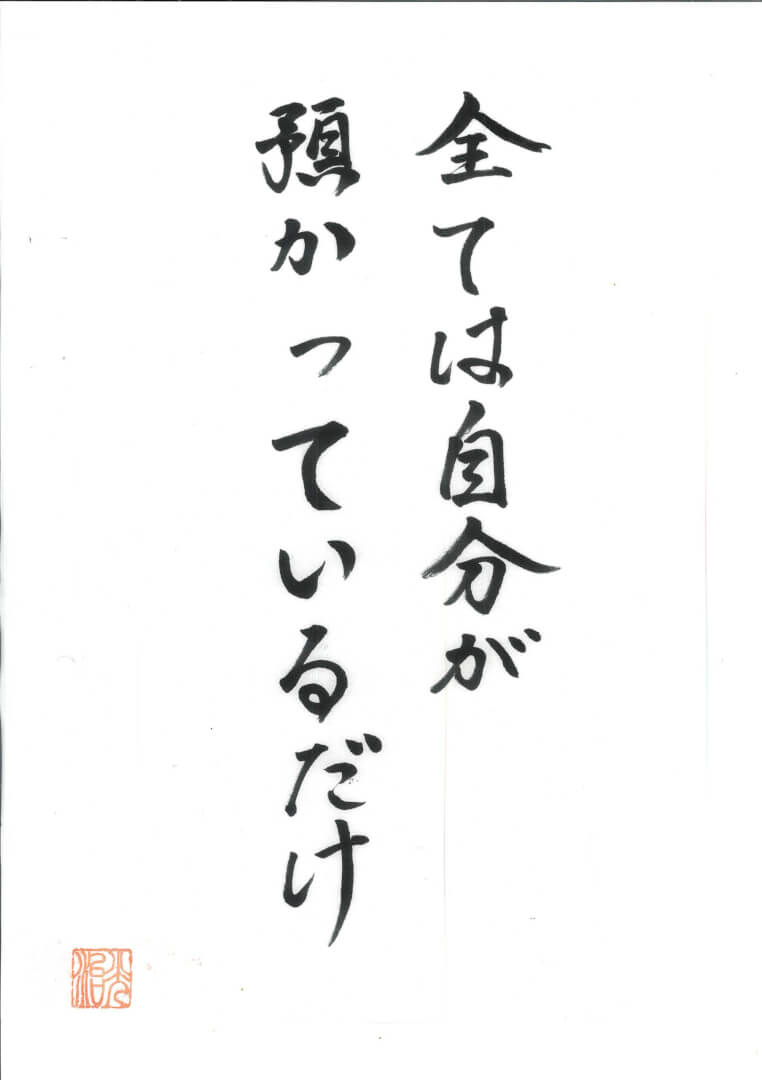 全ては自分が
預かっているだけ